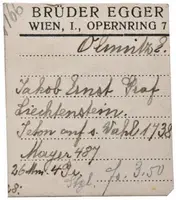 BRÜDER EGGER
WIEN, I., OPERNRING 7
Olmütz
Jakob Ernst Graf
Liechtenstein.
Jeton auf s. Wahl 1738
Mayer 487
26 Mm. 4.3 gr.
3.50